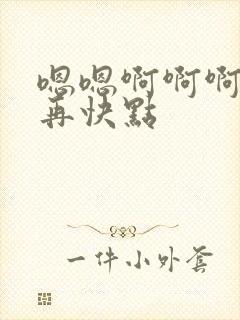 嗯嗯啊啊啊
再快點
一件小外套